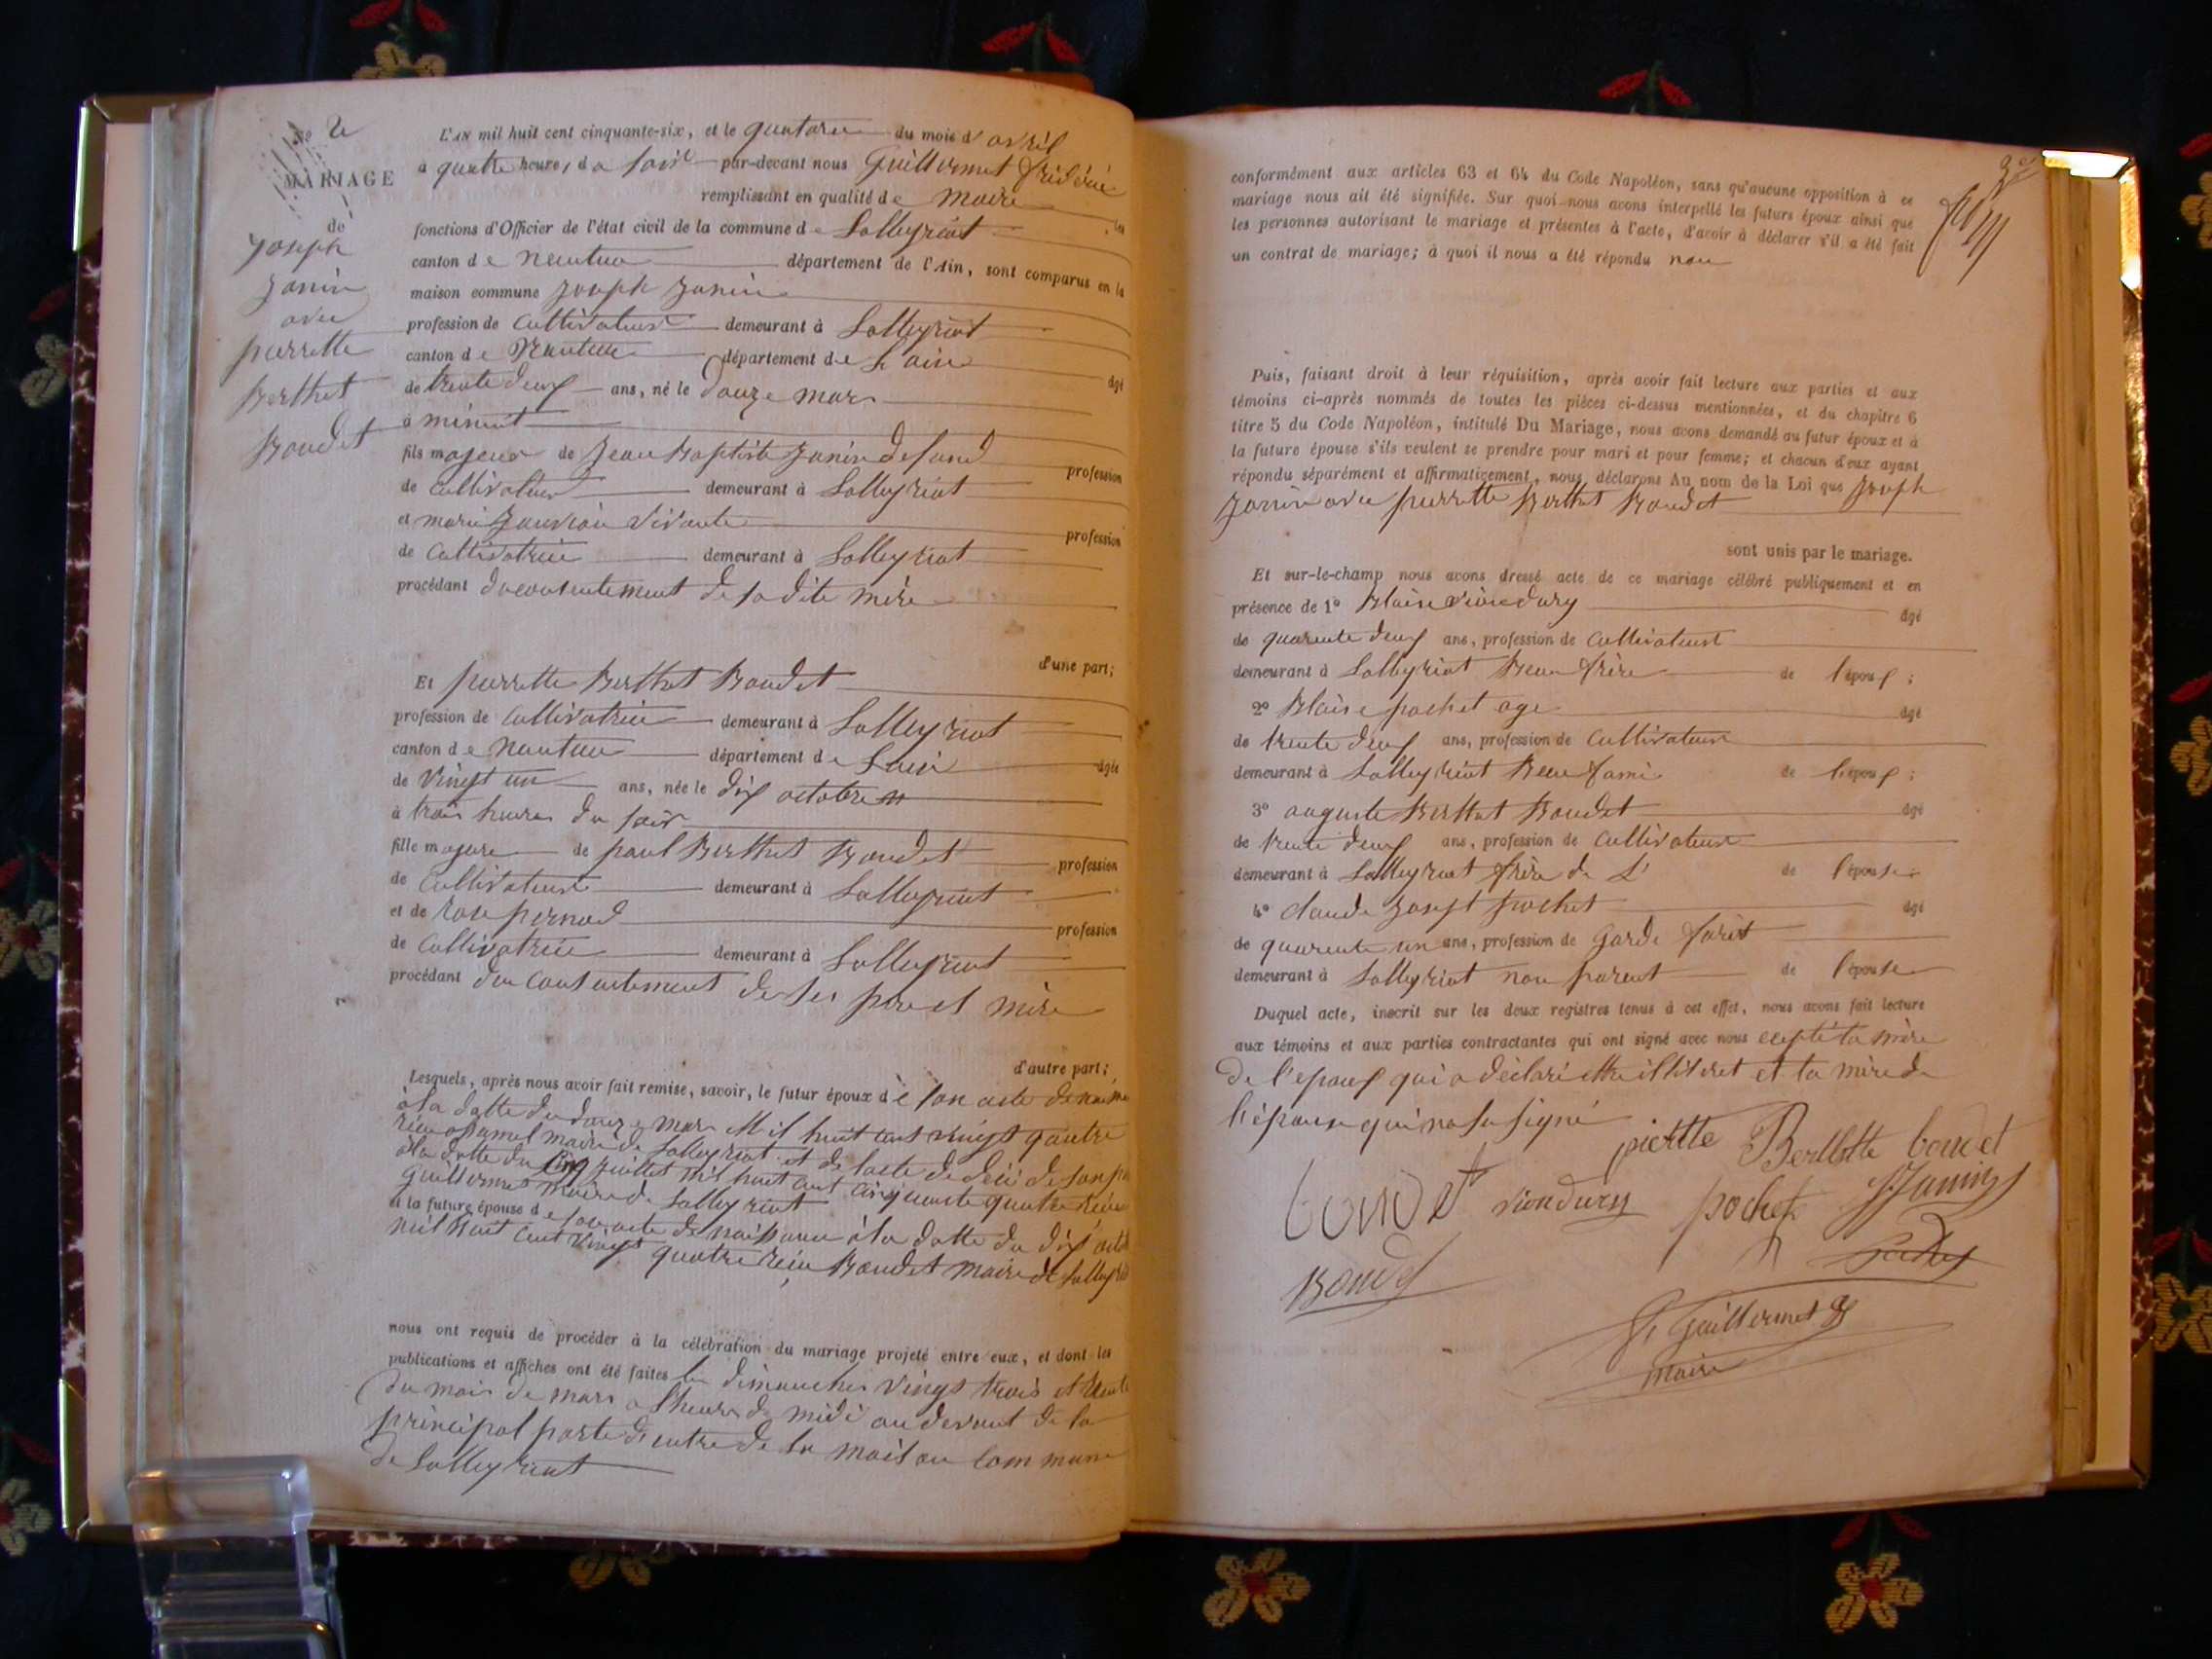 No 2
MARIAGE
de
Joseph
Janin
avec
pierrette
Berthet
Boudet
L'AN mil huit cent cinquante-six, et le quatorze du mois d'avril
à quatre heures du soir par-devant nous Guillermet fridéric
remplissant en qualité de maire les
fonctions d'Officier de l'état civil de la commune de Lalleyriat
canton de nantua département de l'Ain, sont comparus en la
maison commune Joseph Janin
profession de Cultivateur demeurant à Lalleyriat
canton de Nantua département de L'ain âgé
de trente deux ans, né le douze mars
à minuit
fils majeur de Jean Baptiste Janin defund profession
de Cultivateur demeurant à Lalleyriat
et marie vivante profession
de Cultivatrice demeurant à Lalleyriat
procédant du consentement de sa dite mère
d'une part;
Et pierrette Berthet Boudet
profession de Cultivatrice demeurant à Lalleyriat
canton de nantua département de Lain âgée
de vingt un ans, née le dix octobre
à trois heures du soir
fille majeure de paul Berthet Boudet profession
de Cultivateur demeurant à Lalleyriat
et de rose pernod profession
de Cultivatrice demeurant à Lalleyriat
procédant du consentement de ses pere et mère
d'autre part;
Lesquels, après nous avoir fait remise, savoir, le futur époux de son acte de
à la datte du douze mars Mil huit cent vingt quatre
maire de Lalleyriat et de lacte de de son
à la datte du cinq juillet mil huit cent cinquante quatre
Guillermet maire de Lalleyriat
et la future épouse de son acte de naissance à la datte du dix
mil huit cent vingt quatre Boudet maire de
nous ont requis de procéder à la célébration du mariage projeté entre eux, et dont les
publications et affiches ont été faites les dimanches vingt trois et trente
du mois de mars a lheure de midi au devant de la
principal porte de la maison commune
de Lalleyriat
conformément aux articles 63 et 64 du Code Napoléon, sans qu'aucune opposition à ce
mariage nous ait été signifiée. Sur quoi nous avons interpellé les futurs époux ainsi que
les personnes autorisant le mariage et présentes à l'acte, d'avoir à déclarer s'il a été fait
un contrat de mariage; à quoi il nous a été répondu non
Puis, faisant droit à leur réquisition, après avoir fait lecture aux parties et aux
témoins ci-après nommés de toutes les pièces ci-dessus mentionnées, et du chapitre 6
titre 5 du Code Napoléon, intitulé Du Mariage, nous avons demandé au futur époux et à
la future épouse s'ils veulent se prendre pour mari et pour femme; et chacun d'eux ayant
répondu séparément et affirmativement, nous déclarons Au nom de la Loi que Joseph
Janin avec pierrette Berthet Boudet
sont unis par le mariage.
Et sur-le-champ nous avons dressé acte de ce mariage célébré publiquement et en
présence de 1° Blaise âgé
de quarente deux ans, profession de Cultivateur
demeurant à Lalleyriat Beau frère de l'époux;
2° Blaise pochet age âgé
de trente deux ans, profession de Cultivateur
demeurant à Lalleyriat Beau de l'époux;
3° auguste Berthet Boudet âgé
de trente deux ans, profession de Cultivateur
demeurant à Lalleyriat frère de L' de l'épouse
4° Claude Joseft pochet âgé
de quarente un ans, profession de Garde forêt
demeurant à Lalleyriat non parent de l'épouse
Duquel acte, inscrit sur les deux registres tenus à cet effet, nous avons fait lecture
aux témoins et aux parties contractantes qui ont signé avec nous la mère
de l'epoux qui a déclaré ettre illitéret et la mère de
l'épouse qui signé
pierette Berthette boudet
boudet pochet Janin
Boudet
Guillermet
maire